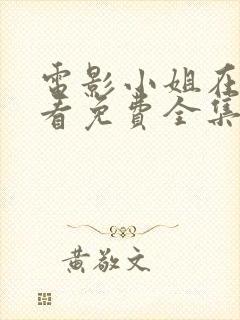 電影小姐在
看免費全集
黃敬文